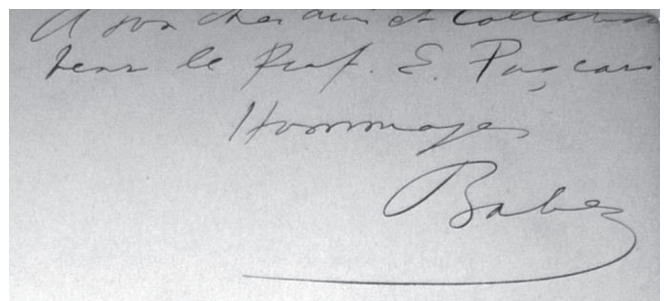 A son cher ami et Collabora
teur le Prof. E. Pușcari
Hommages
Babeș